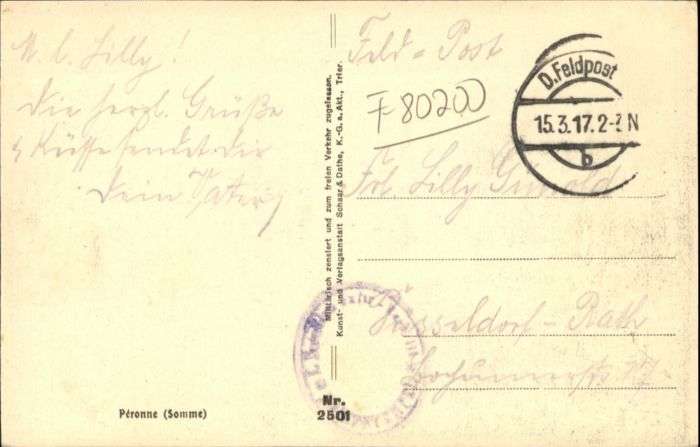 M. l. Lilly!
die herzl. Grüße
& Küsse sendet dir
dein Vater
Feld-Post
F 80200
D. Feldpost
15.3.17. 2-3 N
b
Frl. Lilly
Düsseldorf-Rath
Militärisch zensiert und zum freien Verkehr zugelassen.
Kunst- und Verlagsanstalt Schaar & Dathe, K.-G. a. Akt., Trier.
Péronne (Somme)
Nr.
2501